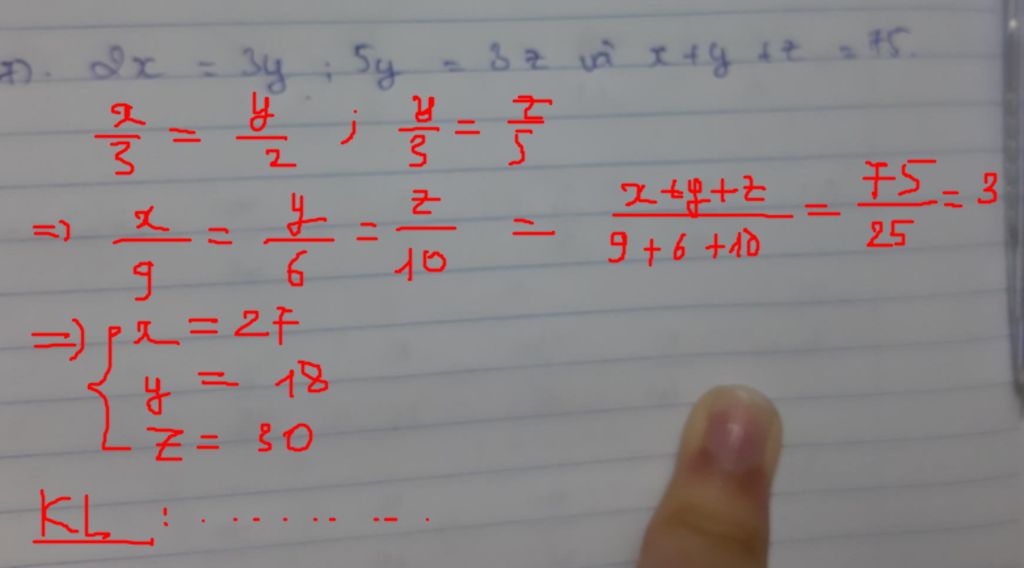 7). 2x = 3y ; 5y = 3z và x+y+z = 75.
x/3 = y/2 ; y/3 = z/5
=> x/9 = y/6 = z/10 = x+y+z/9+6+10 = 75/25 = 3
=> { x = 27
y = 18
z = 30
KL : . . . . . . . . . .